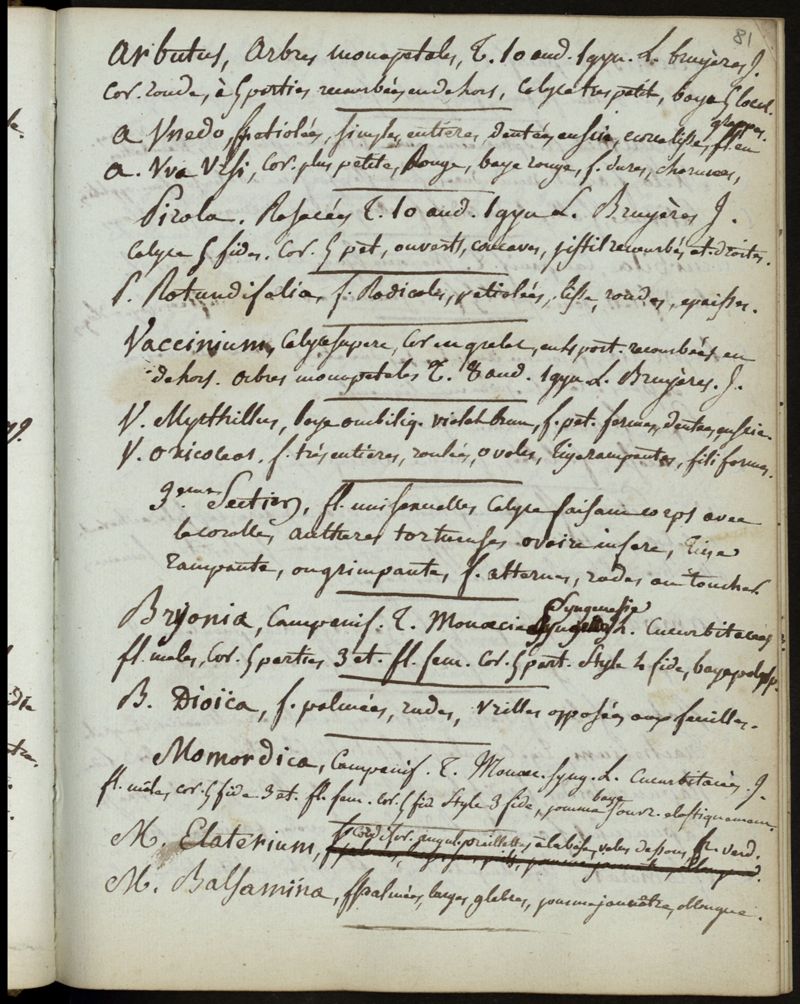 81
Arbutus, Arbres monopetales, T. 10 and. 1 gyn. L. bruyères J.
Cor. ronde, à 5 parties recourbées en dehors, Calyce tres petit, baye 5 locul.
A Unedo, f. petiolées, simples, entières, dentées en scie, corce lisse, fl. en grappes.
A. Uva Ursi, Cor. plus petite, Rouge, baye rouge, f. dures, charnues,
Pirola. Rosacées T. 10 and. 1 gyn L. Bruyères J.
Calyce 5 fides. Cor. 5 pet, ouverts, concaves, pistil recourbé, et. droites.
P. Rotundifolia, f. Radicales, petiolées, lisse, rondes, epaisses.
Vaccinium, Calyce supere, Cor en grelot, en 4 part. recourbées en
dehors. Arbres monopetales T. 8 and. 1 gyn L. Bruyères. J.
V. Myrthillus, baye ombiliq. violet brun, f. pet. fermes, dentées en scie.
V. oxicocos, f. très entières, roulées, ovales, tige rampantes, filiformes.
3eme Section, fl. unisexuelles Calyce faisant corps avec
la corolle, antheres tortueuses ovaire infere, tige
rampante, ou grimpante, f. alternes, rudes au toucher.
Bryonia, Campanif. T. Monœcie Syngenesie L. Cucurbitacées
fl. males, Cor. 5 parties 3 et. fl. fem. Cor. 5 part. Style 4 fide, baye polysp.
B. Dioïca, f. palmées, rudes, vrilles opposées aux feuilles.
Momordica, Campanif. T. Monœc. syng. L. Cucurbitacées. J.
fl. mâles, cor. 5 fide 3 et. fl. fem. Cor. 5 fid Style 3 fide, pomme baye s'ouvr. elastiquement.
M. Elaterium, f. Cordifor. angul. oreillettes à la base, velues dessous, fr. verd.
M. Balsamina, f. palmées, larges, glabres, pomme jaunâtre, oblongue.